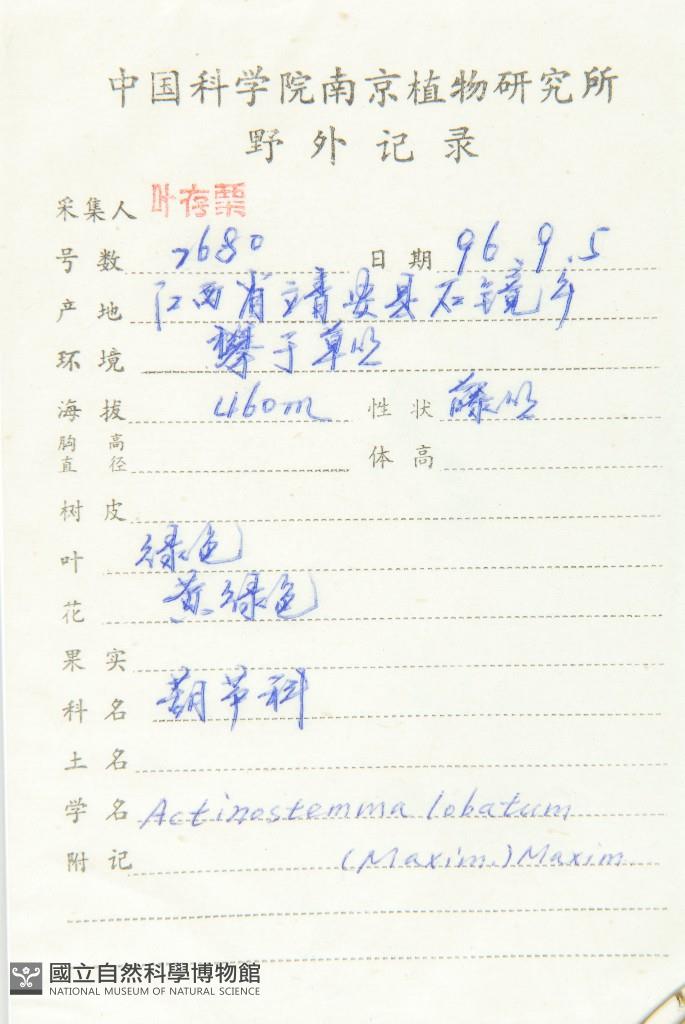 中国科学院南京植物研究所
野外记录
采集人 叶存粟
号数 7680 日期 96.9.5
产地 江西省靖安县石镜乡
环境 攀于草丛
海拔 460m 性状 藤丛
胸高直径 体高
树皮
叶 绿色
花 黄绿色
果实
科名 葫芦科
土名
学名 Actinostemma lobatum
附记 (Maxim.) Maxim.
國立自然科學博物館
NATIONAL MUSEUM OF NATURAL SCIENCE